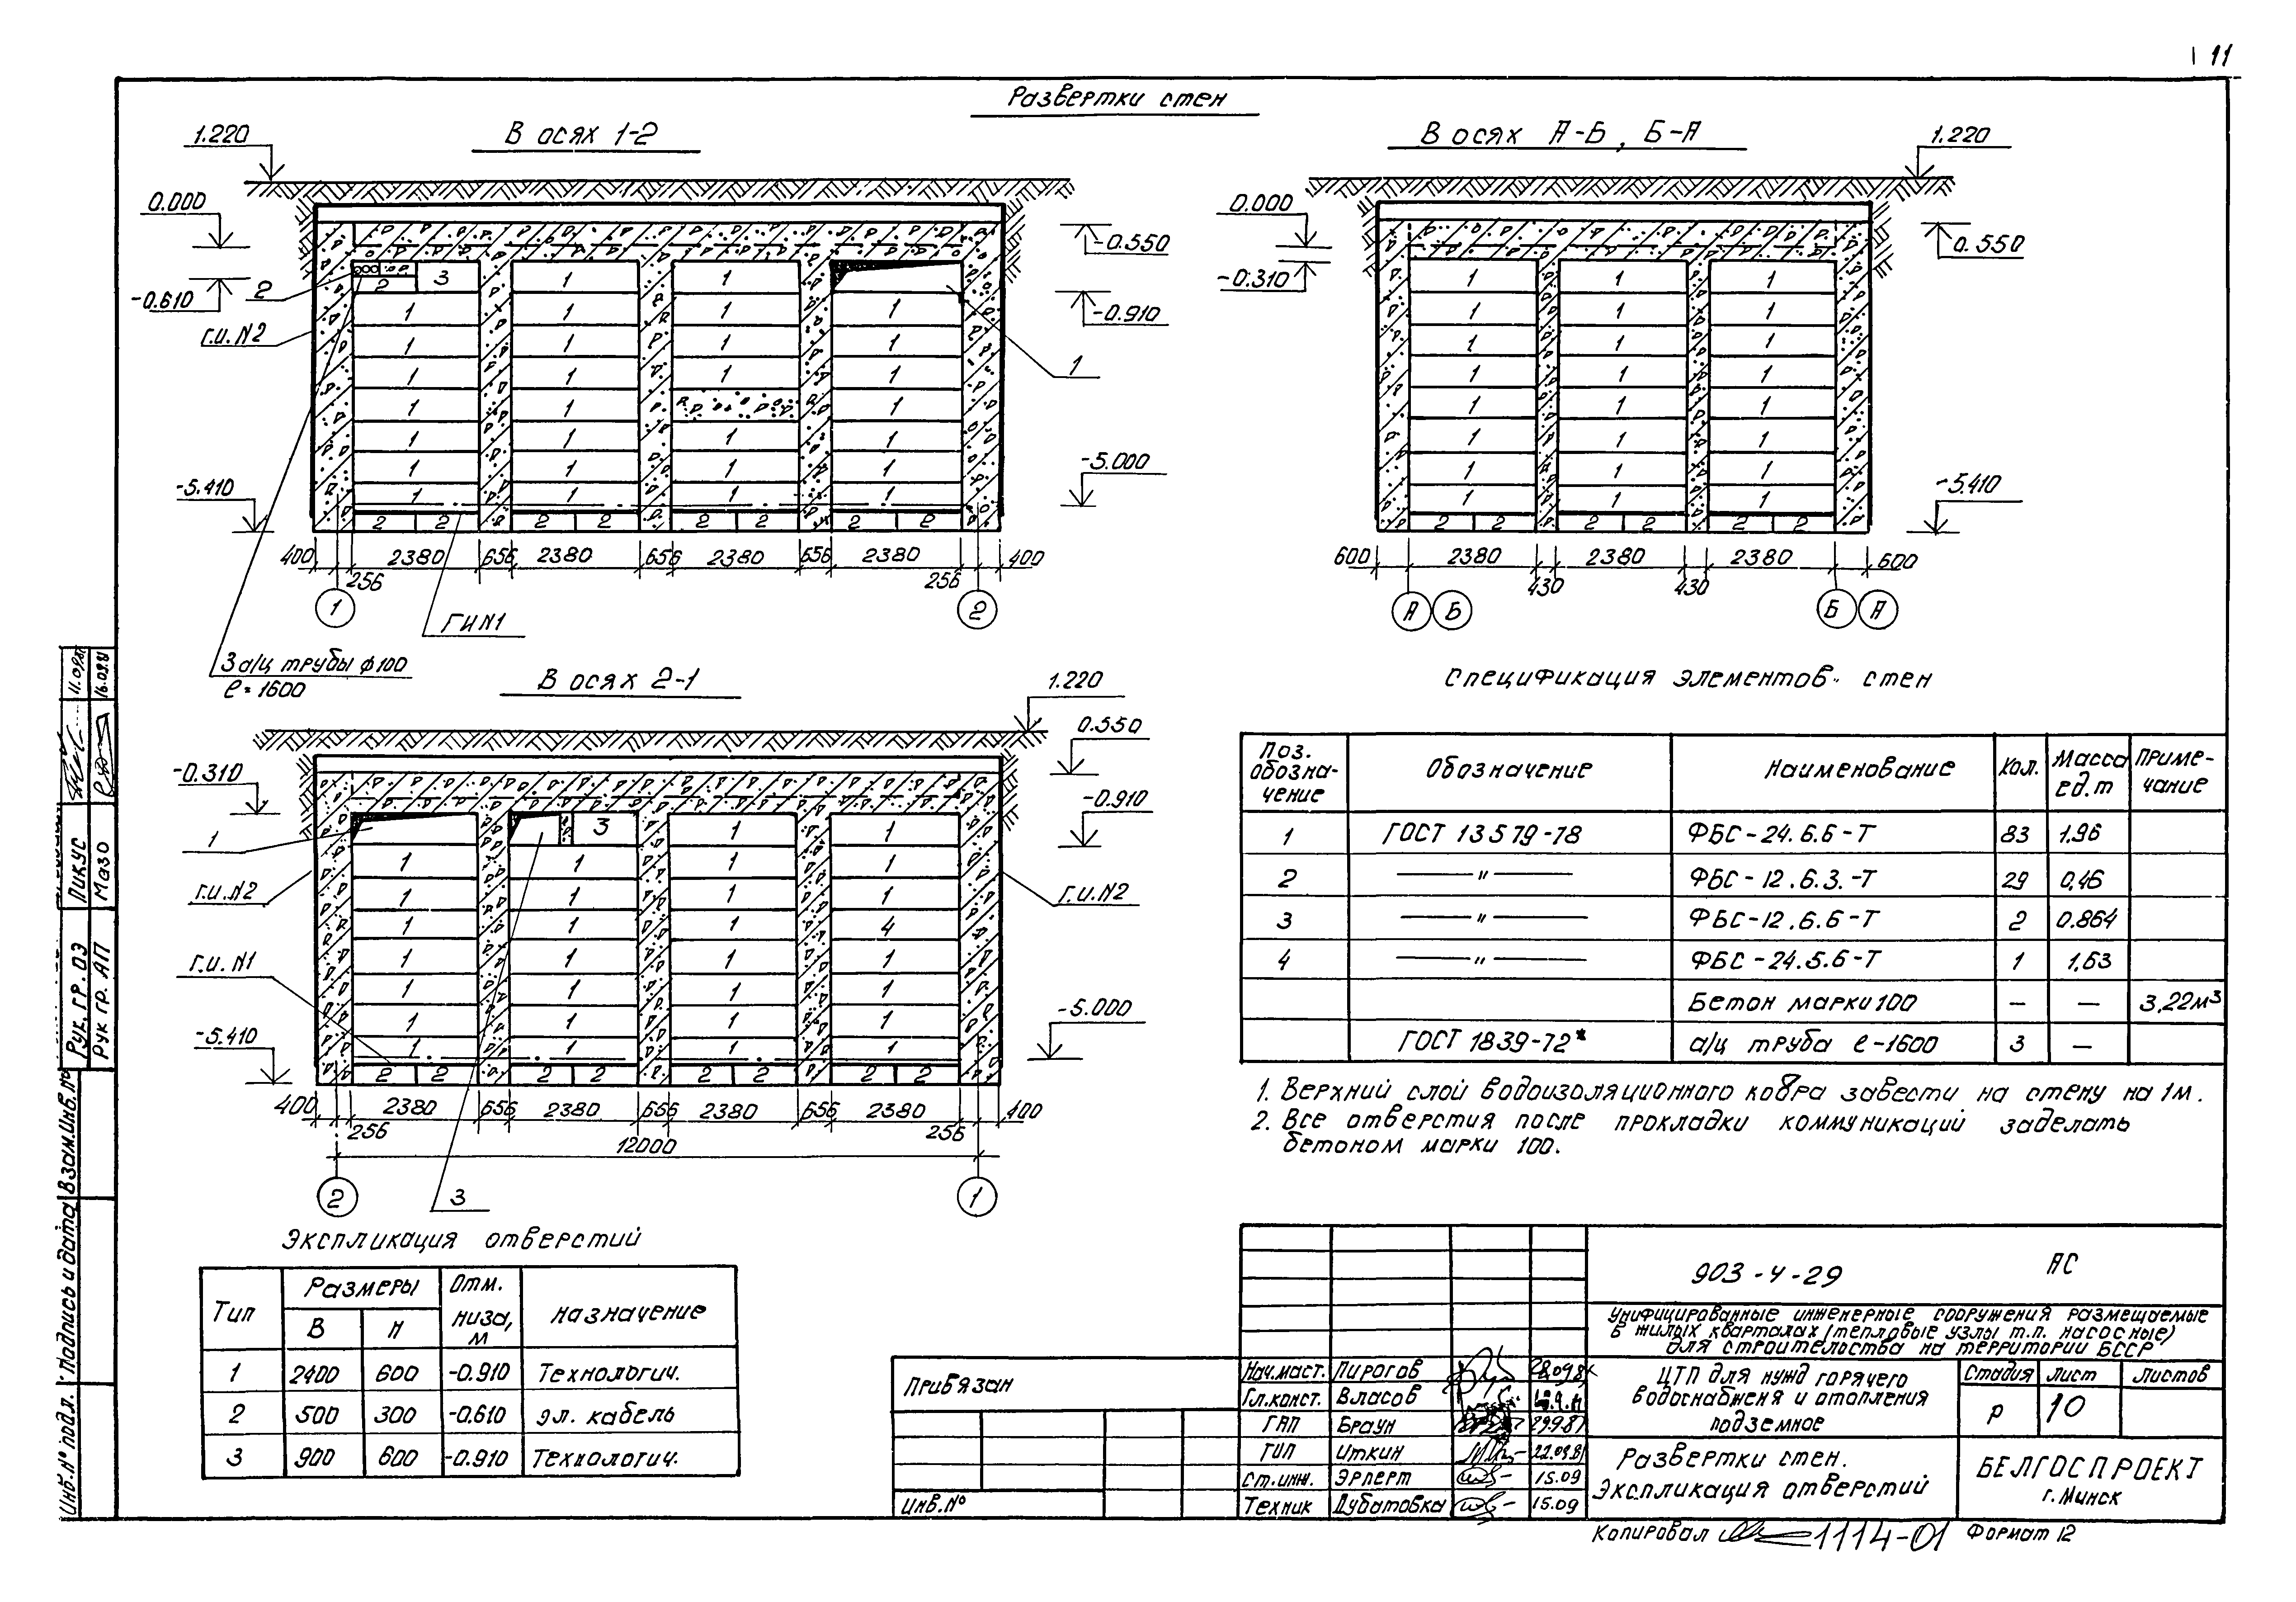 11
Развертки стен
В осях 1-2
1.220
0.000
-0.610
2
г.и. N2
-5.410
-0.550
-0.910
1
-5.000
2 3 1 1 1
1 1 1 1
1 1 1 1
1 1 1 1
1 1 1
1 1 1 1
1 1 1 1
1 1 1 1
2 2 2 2 2 2 2 2
400 2380 656 2380 656 2380 656 2380 400
256 256
1 2
ГИ N1
3 а/ц трубы ф100
ℓ=1600
В осях А-Б, Б-А
1.220
0.000
-0.310
0.550
-5.410
1 1 1
1 1 1
1 1 1
1 1 1
1 1 1
1 1 1
1 1 1
1 1 1
2 2 2 2 2 2
600 2380 2380 2380 600
430 430
А Б Б А
В осях 2-1
1.220
0.550
-0.310
-0.910
1
г.и. N2
г.и. N2
г.и. N1
-5.410
-5.000
3 1 1
1 1 1 1
1 1 1 1
1 1 1 4
1 1 1 1
1 1 1 1
1 1 1 1
1 1 1 1
2 2 2 2 2 2 2 2
400 2380 656 2380 656 2380 656 2380 400
256 256
12000
2 1
3
Спецификация элементов стен
Поз. обозна-чение Обозначение Наименование Кол. Масса ед.т Приме-чание
1 ГОСТ 13579-78 ФБС-24.6.6-Т 83 1,96
2 —"— ФБС-12.6.3.-Т 29 0,46
3 —"— ФБС-12.6.6-Т 2 0.864
4 —"— ФБС-24.5.6-Т 1 1,63
Бетон марки 100 — — 3,22м³
ГОСТ 1839-72* а/ц труба ℓ-1600 3 —
1. Верхний слой водоизоляционного ковра завести на стену на 1м.
2. Все отверстия после прокладки коммуникаций заделать
бетоном марки 100.
Экспликация отверстий
Тип Размеры Отм. низа, м Назначение
В Н
1 2400 600 -0.910 Технологич.
2 500 300 -0.610 эл. кабель
3 900 600 -0.910 Технологич.
Привязан
Инв.№
903-4-29 АС
Унифицированные инженерные сооружения размещаемые
в жилых кварталах (тепловые узлы т.п. насосные)
для строительства на территории БССР
Нач.маст. Пирогов 28.09.81
Гл.конст. Власов
ГАП Браун 29.9.81
ГИП Иткин 22.09.81
Ст.инж. Эрперт 15.09
Техник Дубатовка 15.09
ЦТП для нужд горячего
водоснабженя и отопления
подземное
Стадия Лист Листов
Р 10
Развертки стен.
Экспликация отверстий
БЕЛГОСПРОЕКТ
г. Минск
Копировал 1114-01 Формат 12
Рук. гр. ОЗ Пикус 11.09.81
Рук гр. АП Мазо 16.09.81
Инв.№ подл. Подпись и дата Взам.инв.№